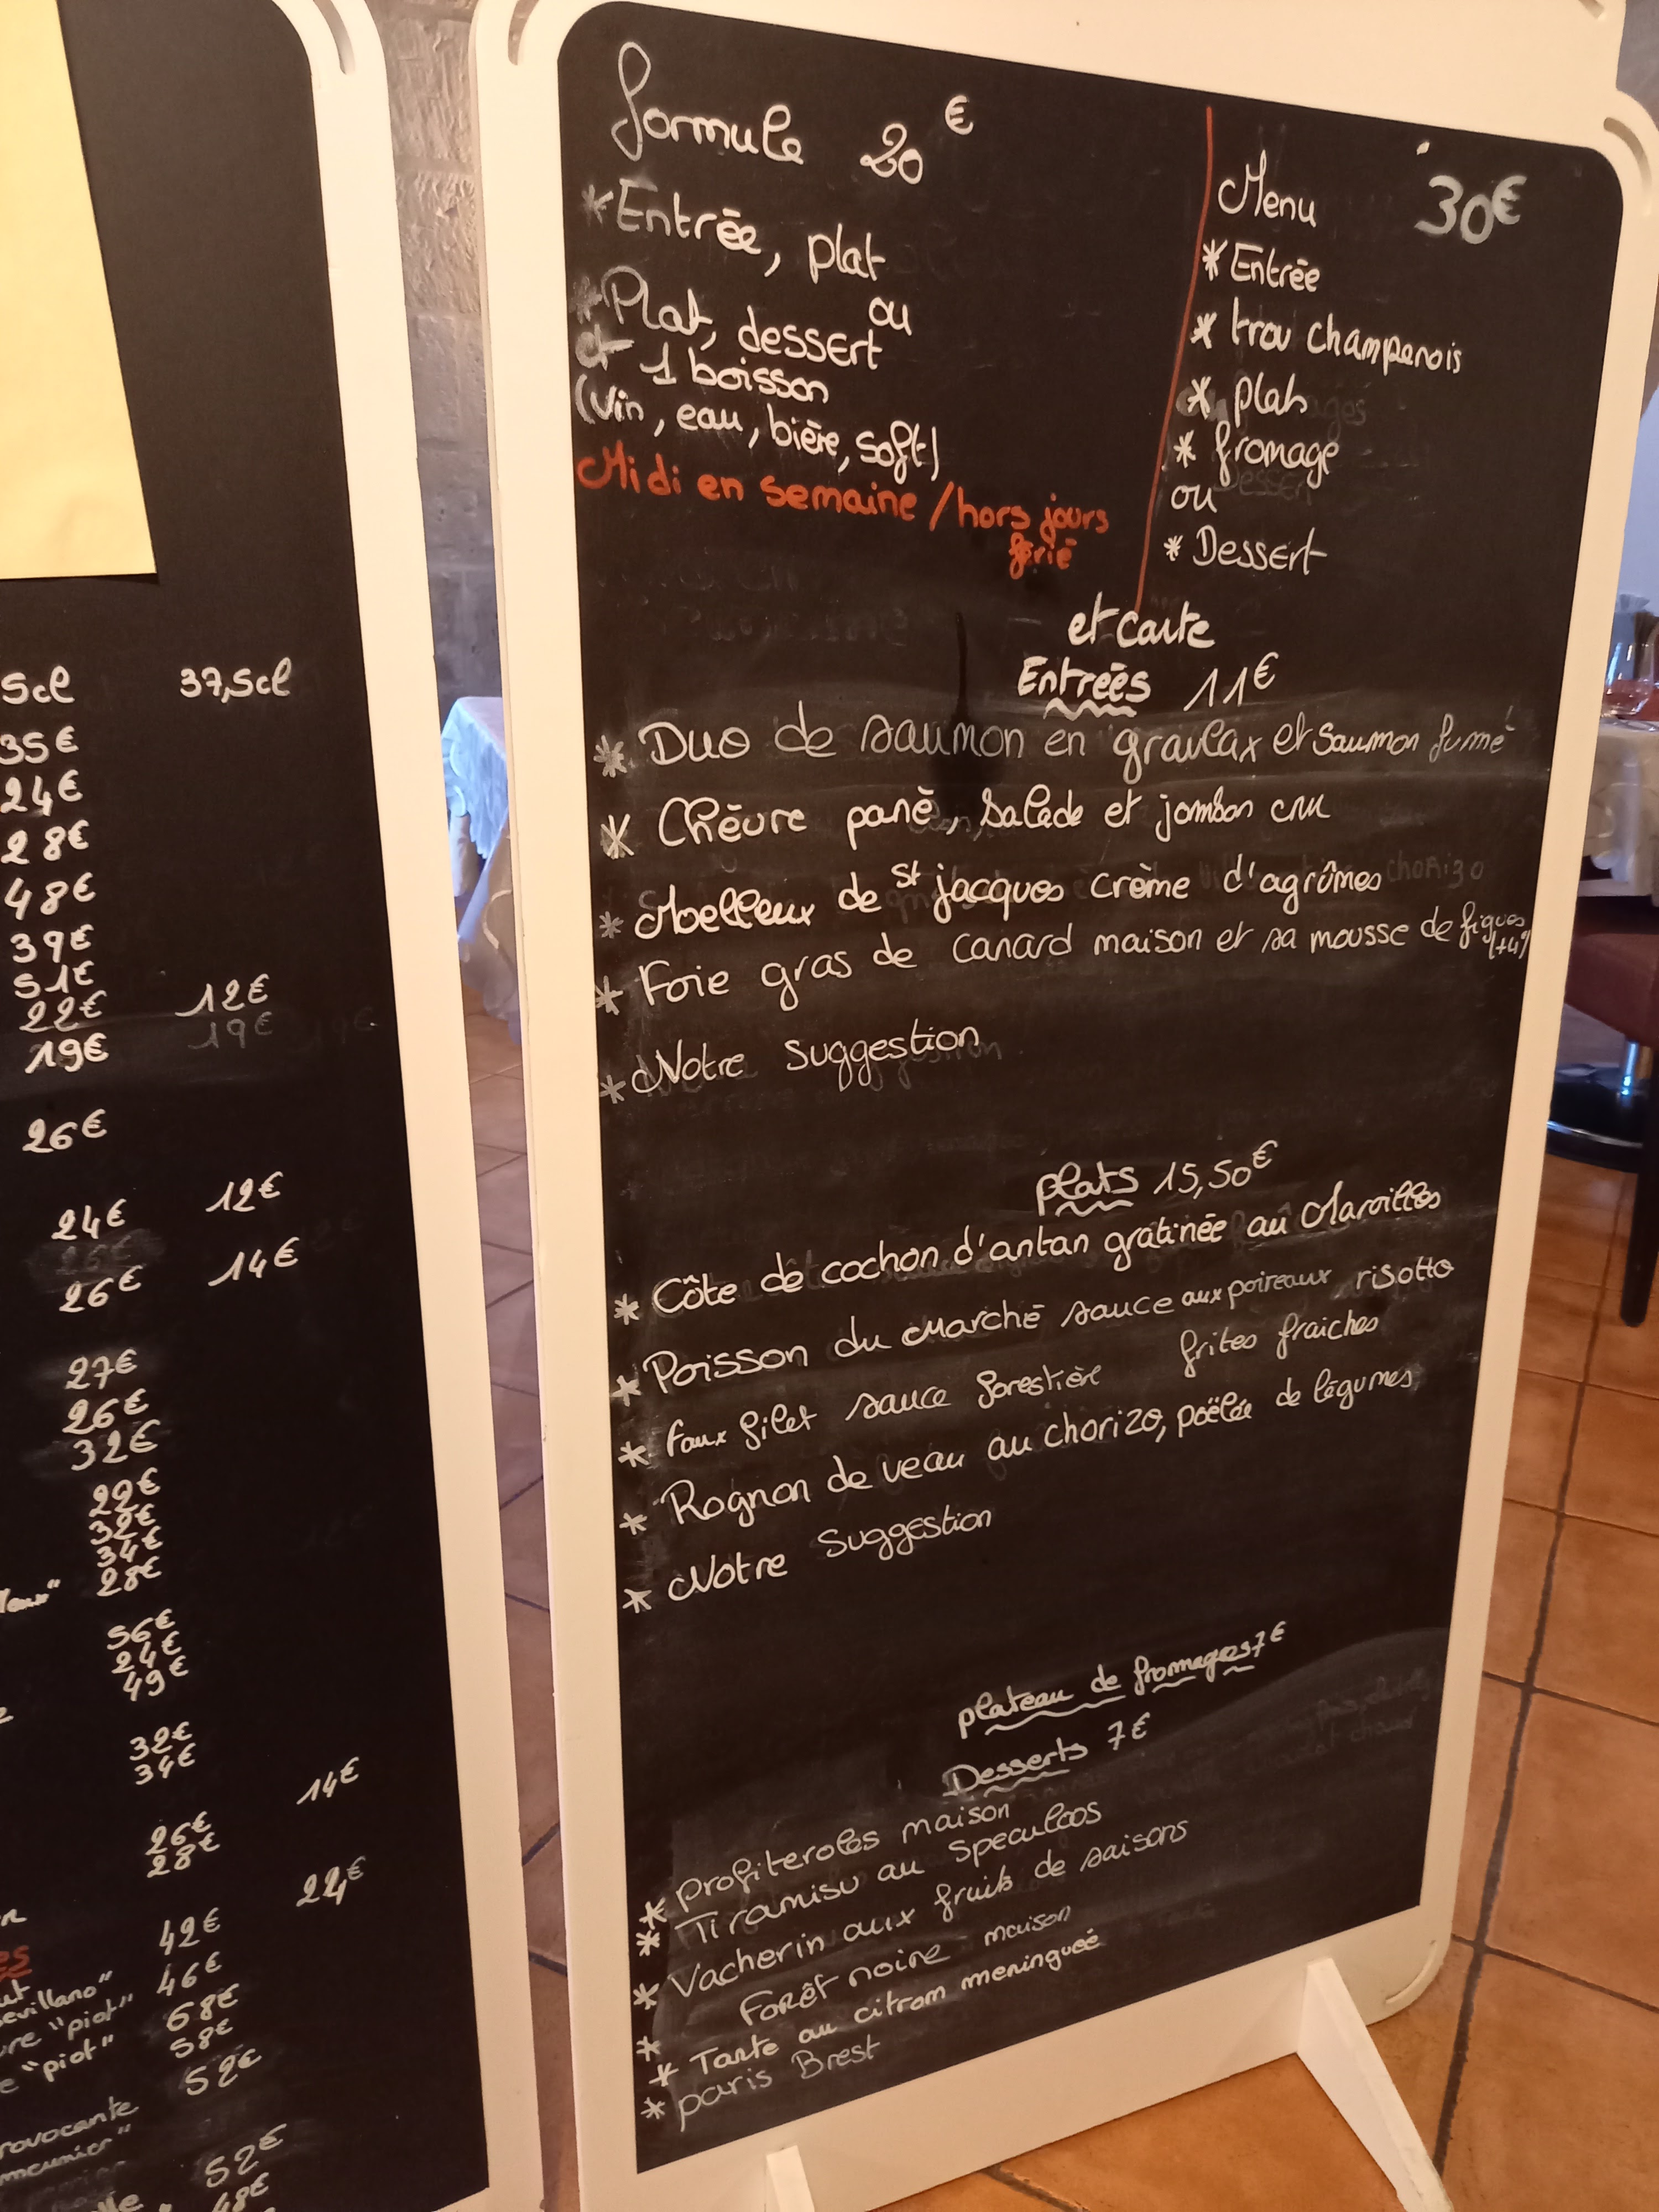 5cl 37,5cl
35€
24€
28€
48€
39€
51€
22€ 12€
19€ 19€
26€
24€ 12€
26€ 14€
27€
26€
32€
22€
32€
34€
28€
56€
24€
49€
32€
34€
14€
26€
28€
22€
42€
evillano" 46€
"piot" 68€
"piot" 58€
52€
52€
48€
formule 20€
*Entrée, plat
ou
*Plat, dessert
et 1 boisson
(vin, eau, bière, soft)
Midi en semaine / hors jours
férié
Menu 30€
* Entrée
* trou champenois
* plat
* fromage
ou
* Dessert
et carte
Entrées 11€
* Duo de saumon en gravlax et saumon fumé
* Chèvre pané, salade et jambon cru
* Moelleux de St jacques crème d'agrûmes
* Foie gras de canard maison et sa mousse de figues
* Notre suggestion
plats 15,50€
* Côte de cochon d'antan gratinée au Maroilles
* Poisson du marché sauce aux poireaux risotto
* faux filet sauce forestière frites fraiches
* Rognon de veau au chorizo, poëlée de légumes
* Notre suggestion
plateau de fromages 7€
Desserts 7€
* profiteroles maison
* Tiramisu au speculoos
* Vacherin aux fruits de saisons
* Forêt noire maison
* Tarte au citron meringueé
* paris Brest